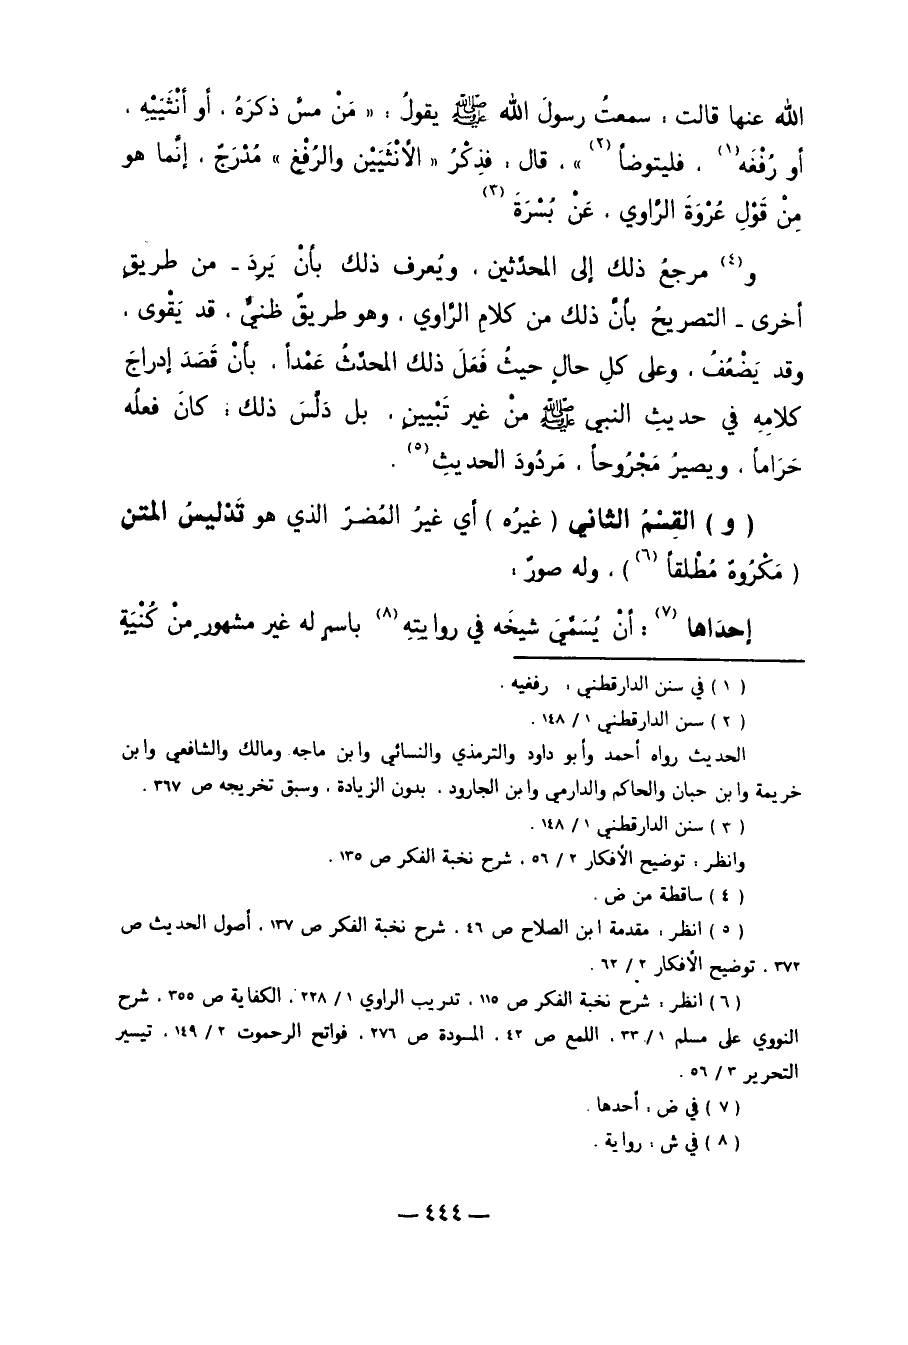 الله عنها قالت : سمعتُ رسولَ الله ﷺ يقولُ : « مَنْ مسَّ ذكرَهُ ، أو أنْثَيَيْهِ ،
أو رُفْغَه(١) ، فليتوضأ(٢) » ، قال : فذِكْرُ « الأنْثَيَيْن والرُفْغِ » مُدْرَجٌ ، إنَّما هو
مِنْ قَوْلِ عُرْوَةَ الرَّاوي ، عَنْ بُسْرَةَ(٣)
و(٤) مرجعُ ذلك إلى المحدّثين ، ويُعرف ذلك بأنْ يَرِدَ ـ من طريقٍ
أخرى ـ التصريحُ بأنَّ ذلك من كلامِ الرَّاوي ، وهو طريقٌ ظنيٌّ ، قد يَقْوى ،
وقد يَضْعُفُ ، وعلى كلِ حالٍ حيثُ فَعَلَ ذلك المحدّثُ عَمْداً ، بأنْ قَصَدَ إدراجَ
كلامِهِ في حديثِ النبي ﷺ منْ غيرِ تَبْيينٍ ، بل دَلَّسَ ذلك : كانَ فعلُه
حَرَاماً ، ويصيرُ مَجْرُوحاً ، مَردُودَ الحديثِ(٥) .
( و ) القِسْمُ الثاني ( غيرُه ) أي غيرُ المُضرّ الذي هو تَدْليسُ المتن
( مَكْرُوهٌ مُطْلقاً(٦) ) ، وله صورٌ :
إحدَاها(٧) : أنْ يُسَمّيَ شيخَه في روايتِهِ(٨) باسمٍ له غير مشهورٍ منْ كُنْيَةٍ
( ١ ) في سنن الدارقطني : رفغيه .
( ٢ ) سنن الدارقطني ١ / ١٤٨ .
الحديث رواه أحمد وأبو داود والترمذي والنسائي وابن ماجه ومالك والشافعي وابن
خزيمة وابن حبان والحاكم والدارمي وابن الجارود ، بدون الزيادة ، وسبق تخريجه ص ٣٦٧ .
( ٣ ) سنن الدارقطني ١ / ١٤٨ .
وانظر : توضيح الأفكار ٢ / ٥٦ ، شرح نخبة الفكر ص ١٣٥ .
( ٤ ) ساقطة من ض .
( ٥ ) انظر : مقدمة ابن الصلاح ص ٤٦ ، شرح نخبة الفكر ص ١٣٧ ، أصول الحديث ص
٣٧٢ ، توضيح الأفكار ٢ / ٦٢ .
( ٦ ) انظر : شرح نخبة الفكر ص ١١٥ ، تدريب الراوي ١ / ٢٢٨ ، الكفاية ص ٣٥٥ ، شرح
النووي على مسلم ١ / ٣٣ ، اللمع ص ٤٢ ، المسودة ص ٢٧٦ ، فواتح الرحموت ٢ / ١٤٩ ، تيسير
التحرير ٣ / ٥٦ .
( ٧ ) في ض : أحدها .
( ٨ ) في ش : رواية .
— ٤٤٤ —